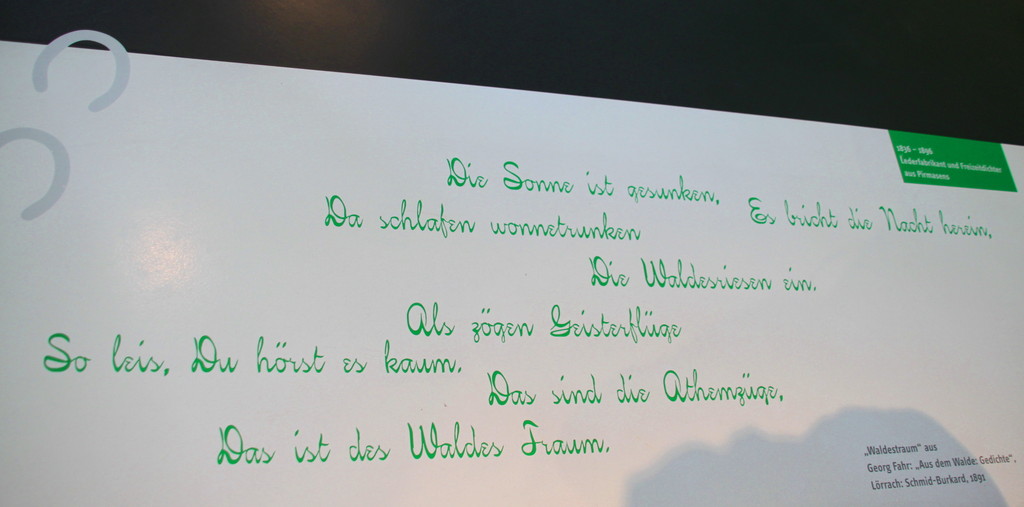 1836 – 1896
Lederfabrikant und Freizeitdichter
aus Pirmasens
Die Sonne ist gesunken,
Es bricht die Nacht herein,
Da schlafen wonnetrunken
Die Waldesriesen ein.
Als zögen Geisterflüge
So leis, Du hörst es kaum,
Das sind die Athemzüge,
Das ist des Waldes Traum.
„Waldestraum“ aus
Georg Fahr: „Aus dem Walde: Gedichte“,
Lörrach: Schmid-Burkard, 1891